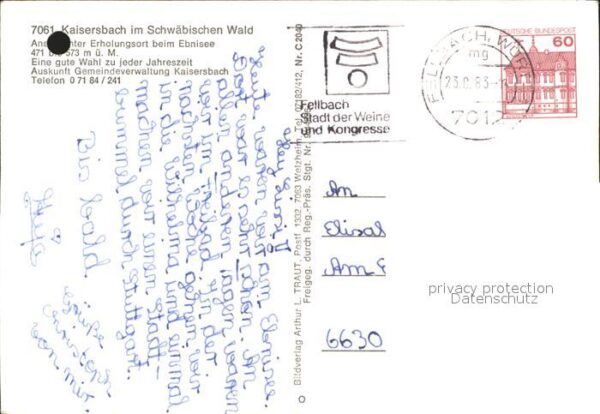 7061 Kaisersbach im Schwäbischen Wald
Erholungsort beim Ebnisee
573 m ü. M.
Eine gute Wahl zu jeder Jahreszeit
Auskunft Gemeindeverwaltung Kaisersbach
Telefon 0 71 84 / 241
Heute waren wir am Ebnisee.
Dort war es recht schön. An
allen anderen Tagen waren
wir im Freibad. In der
nächsten Woche gehen wir
in die Wilhelma und einmal
machen wir einen Stadt-
bummel durch Stuttgart.
Bis bald
Grüße
von mir
Bildverlag Arthur L. TRAUT, Postf. 1332, 7063 Welzheim, Tel. 07182/412, Nr. C 2040
Freigeg. durch Reg.-Präs. Stgt. Nr.
Fellbach
Stadt der Weine
und Kongresse
FELLBACH, WÜRTT
mg
23.8.83
7012
DEUTSCHE BUNDESPOST
60
An
Elisab
Am F
6630
privacy protection
Datenschutz